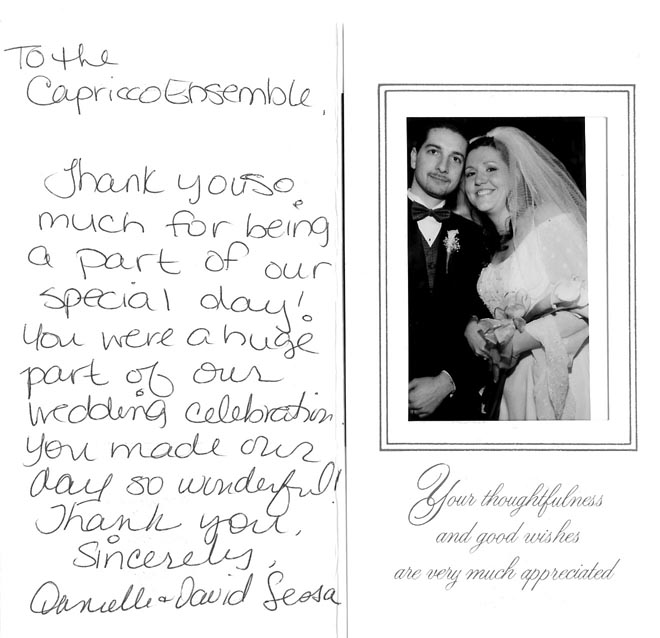 To the
Capricco Ensemble,
Thank you so
much for being
a part of our
special day!
You were a huge
part of our
wedding celebration
you made our
day so wonderful!
Thank you.
Sincerely,
Danielle & David
Your thoughtfulness
and good wishes
are very much appreciated